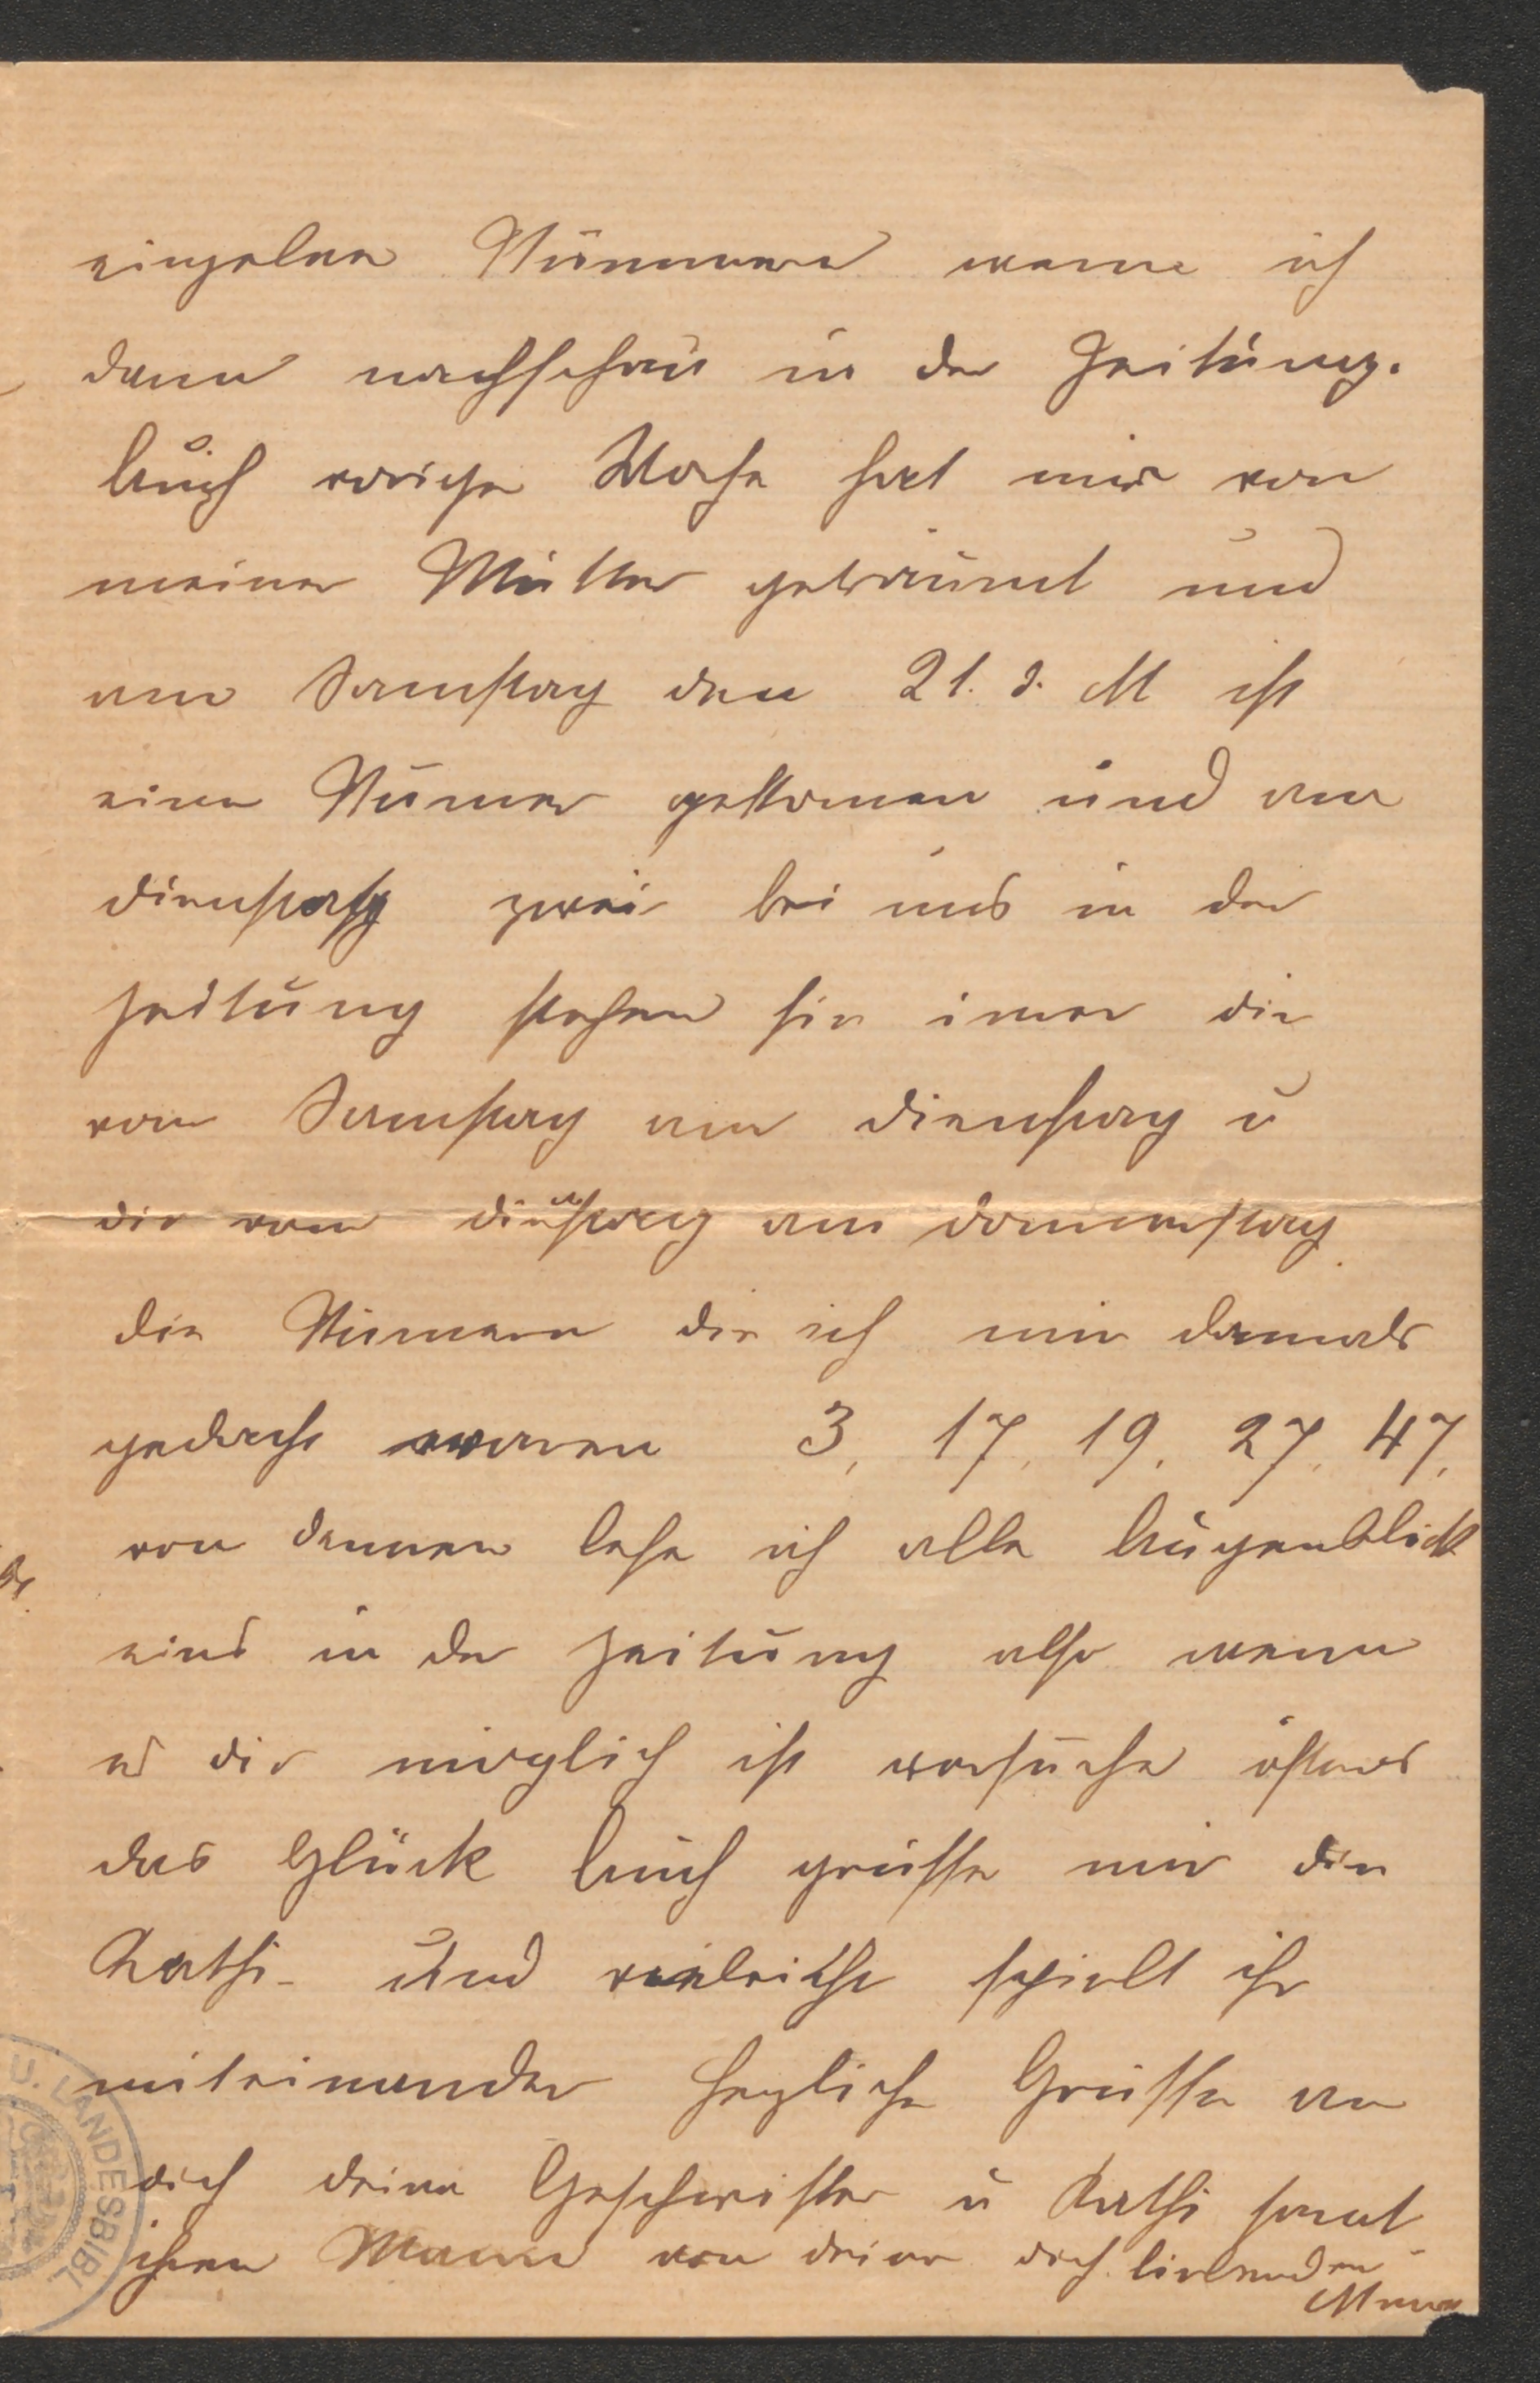 einzelne Nummern wenn ich
dann nachschau in der Zeitung.
Auch vorige Woche hat mir von
meiner Mutter geträumt und
am Samstag den 21. d. M ist
eine Numer gekomen und am
Dienstag zwei bei uns in der
Zeitung stehen sie imer die
vom Samstag am Dienstag u
die vom Dienstag am Donnerstag.
die Numern die ich mir damals
gedacht waren 3, 17, 19, 27, 47,
von dennen lese ich alle Augenblick
eins in der Zeitung also wenn
es dir möglich ist versuche öfters
das Glück Auch grüsse mir die
Kathi und vieleicht spielt ihr
miteinander Herzliche Grüsse an
dich deine Geschwister u Kathi samt
ihren Mann von deiner dich liebenden
U. LANDESBIBL